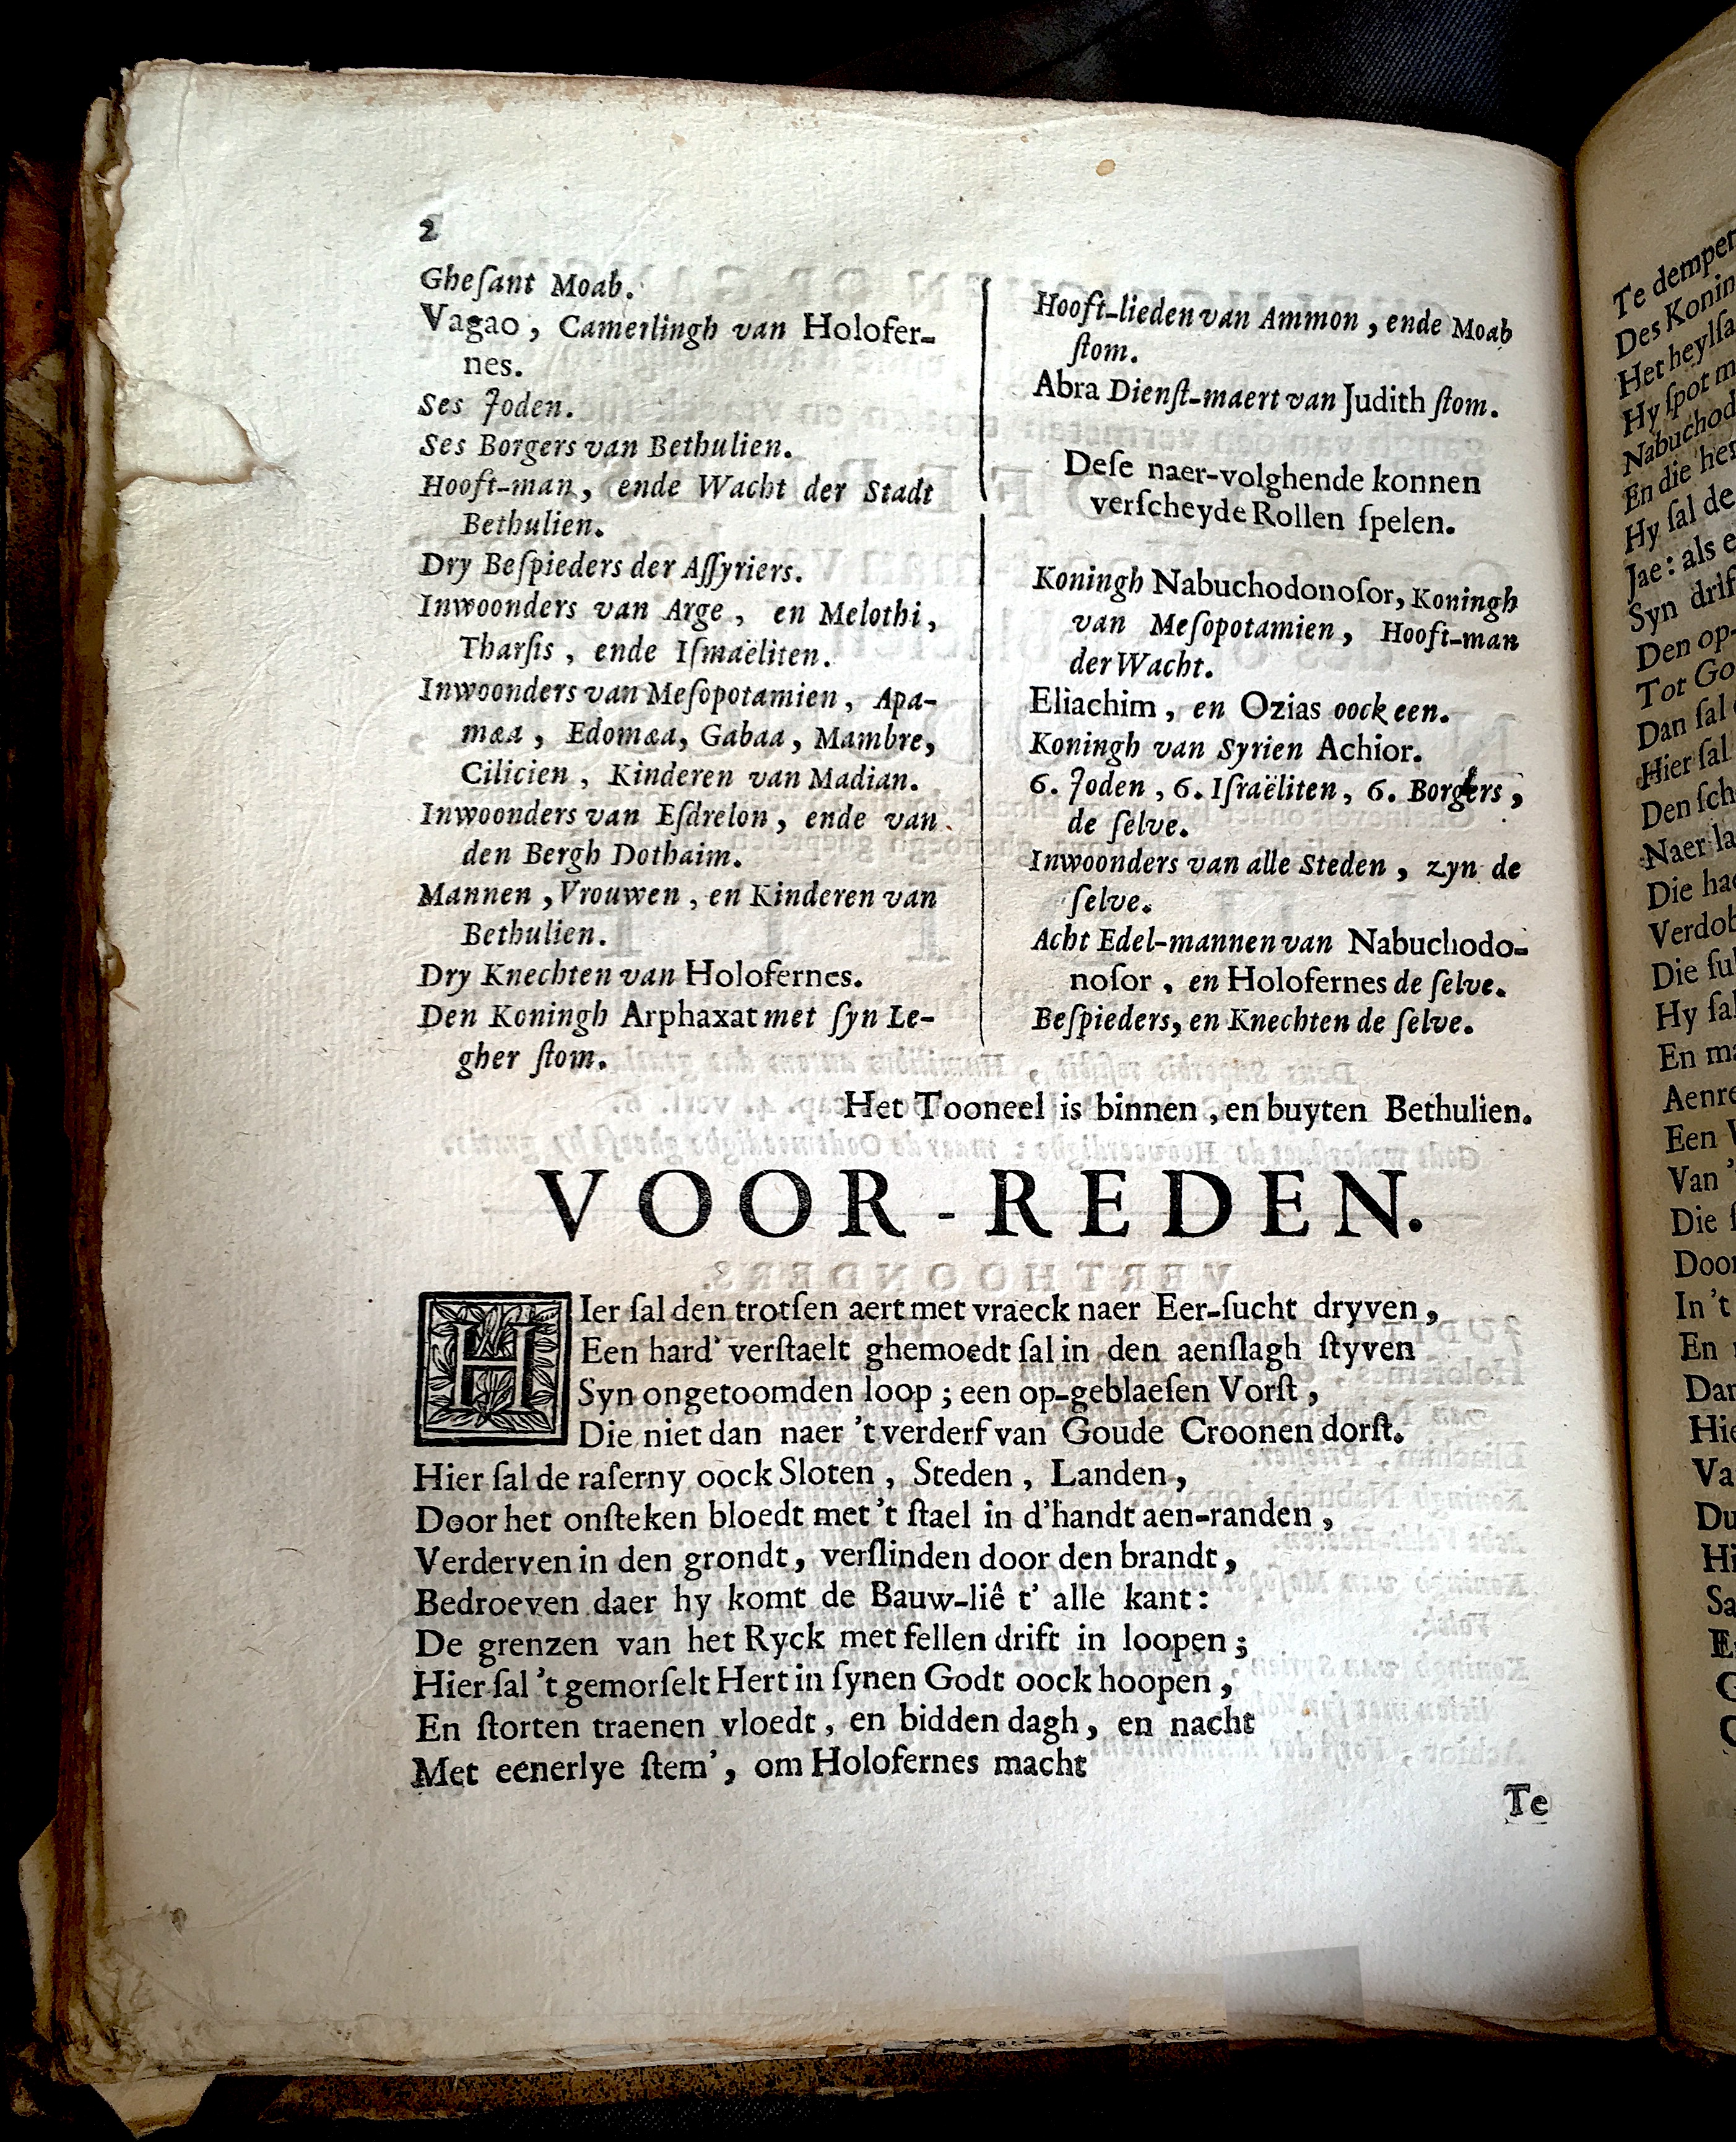 2
Gheſant Moab.
Vagao, Camerlingh van Holofer-
nes.
Ses Joden.
Ses Borgers van Bethulien.
Hooft-man, ende Wacht der Stadt
Bethulien.
Dry Beſpieders der Aſſyriers.
Inwoonders van Arge, en Melothi,
Tharſis, ende Iſmaëliten.
Inwoonders van Meſopotamien, Apa-
mæa, Edomæa, Gabaa, Mambre,
Cilicien, Kinderen van Madian.
Inwoonders van Eſdrelon, ende van
den Bergh Dothaim.
Mannen, Vrouwen, en Kinderen van
Bethulien.
Dry Knechten van Holofernes.
Den Koningh Arphaxat met ſyn Le-
gher ſtom.
Hooft-lieden van Ammon, ende Moab
ſtom.
Abra Dienſt-maert van Judith ſtom.
Deſe naer-volghende konnen
verſcheyde Rollen ſpelen.
Koningh Nabuchodonoſor, Koningh
van Meſopotamien, Hooft-man
der Wacht.
Eliachim, en Ozias oock een.
Koningh van Syrien Achior.
6. Joden, 6. Iſraëliten, 6. Borgers,
de ſelve.
Inwoonders van alle Steden, zyn de
ſelve.
Acht Edel-mannen van Nabuchodo-
noſor, en Holofernes de ſelve.
Beſpieders, en Knechten de ſelve.
Het Tooneel is binnen, en buyten Bethulien.
VOOR-REDEN.
HIer ſal den trotſen aert met vraeck naer Eer-ſucht dryven,
Een hard' verſtaelt ghemoedt ſal in den aenſlagh ſtyven
Syn ongetoomden loop; een op-geblaeſen Vorſt,
Die niet dan naer 't verderf van Goude Croonen dorſt.
Hier ſal de raſerny oock Sloten, Steden, Landen,
Door het onſteken bloedt met 't ſtael in d'handt aen-randen,
Verderven in den grondt, verſlinden door den brandt,
Bedroeven daer hy komt de Bauw-liê t' alle kant:
De grenzen van het Ryck met fellen drift in loopen;
Hier ſal 't gemorſelt Hert in ſynen Godt oock hoopen,
En ſtorten traenen vloedt, en bidden dagh, en nacht
Met eenerlye ſtem', om Holofernes macht
Te
Te demper
Des Konin
Het heylſa
Hy ſpot m
Nabuchod
En die he
Hy ſal de
Jae: als e
Syn drif
Den op-
Tot Go
Dan ſal
Hier ſal
Den ſch
Naer la
Die ha
Verdob
Die ſu
Hy ſal
En ma
Aenre
Een
Van '
Die
Door
In 't
En
Dan
Hie
Va
Du
Hi
Sa